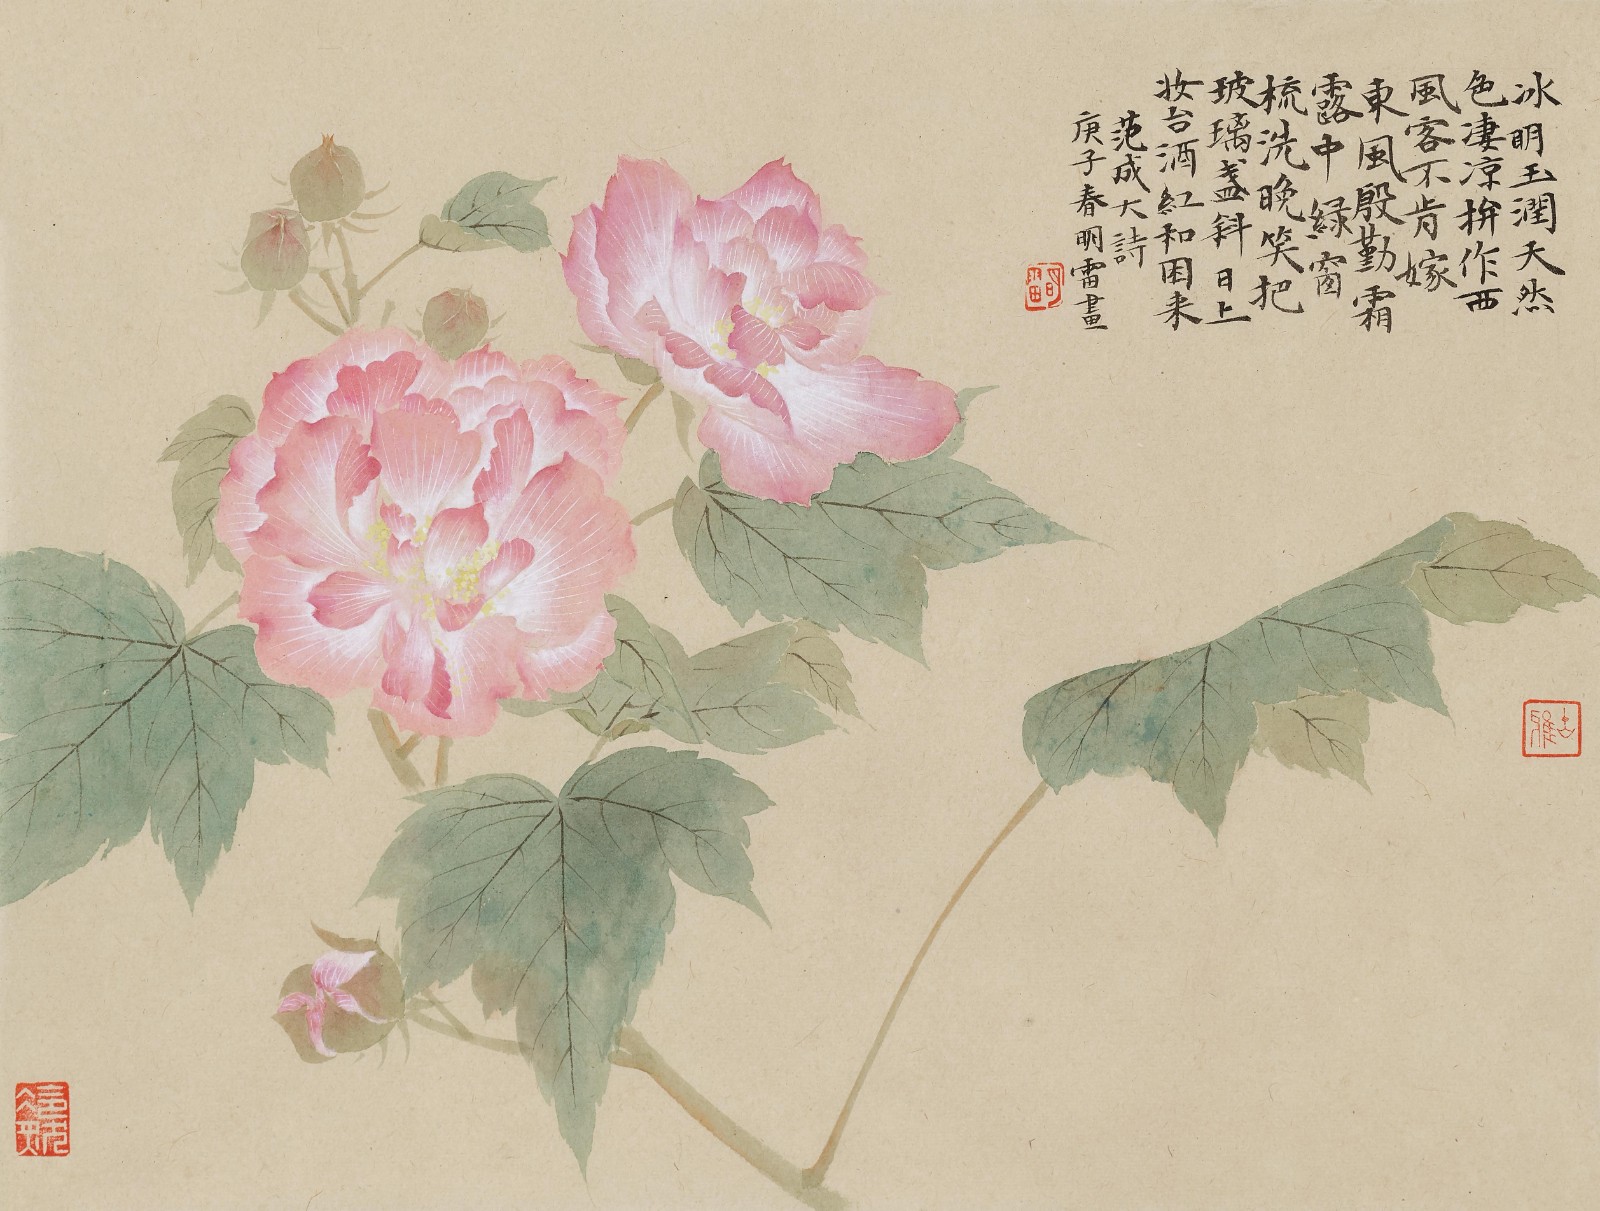 冰明玉潤天然
色凄凉拚作西
風客不肯嫁
東風殷勤霜
露中緑窗
梳洗晚笑把
玻璃盞斜日上
妝台酒紅和困来
范成大詩
庚子春明雷畫
古雅